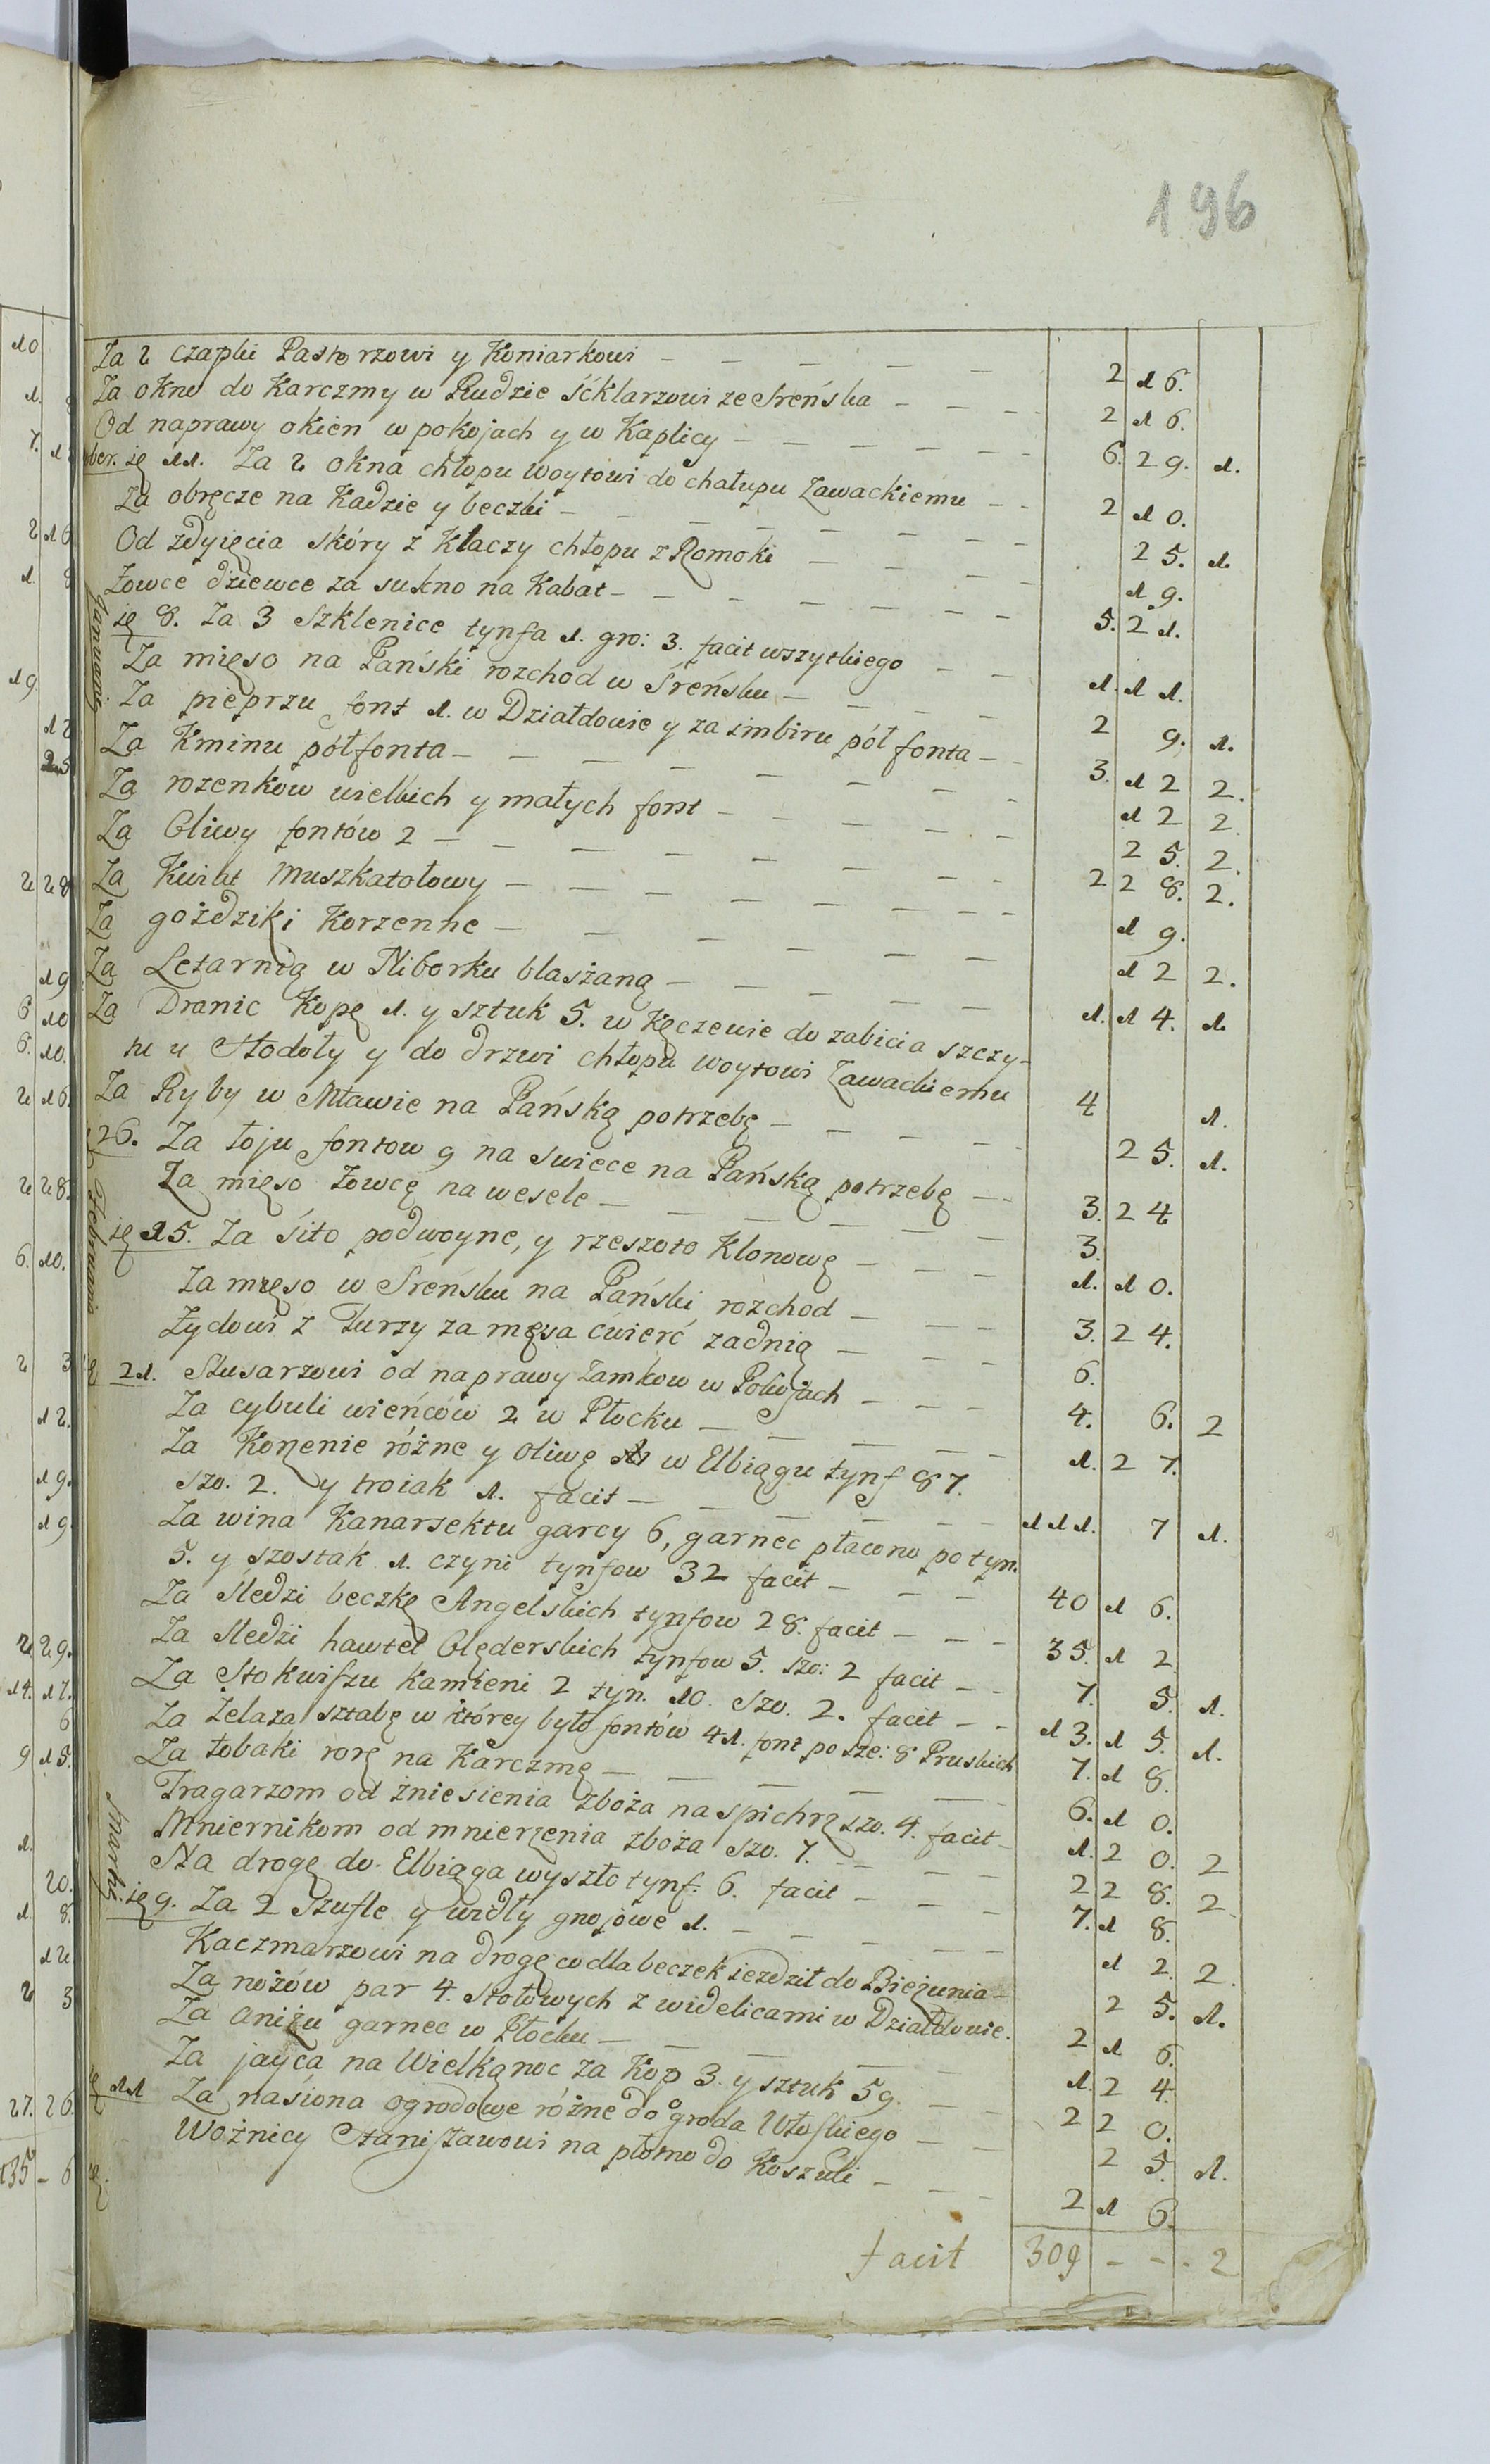 196
Za 2 czapki Pasterzowi y Koniarkowi — — — — 2 16.
Za okno do Karczmy w Rudzie śćklarzowi ze Sreńska — — — 2 16.
Od naprawy okien w pokojach y w Kaplicy — — — — 6. 29. 1.
ber. ię 11. Za 2 okna chłopu woytowi do chałupu Zawackiemu — — 2 10.
Za obręcze na Kadzie y beczki — — — — 25. 1.
Od zdyięcia skóry z Klaczy chłopu z Romoki — — — 19.
Łowce dziewce za sukno na Kabat — — — — 5. 21.
Januarii ię 8. Za 3 Szklenice tynfa 1. gro: 3. facit wszytkiego — — 1. 11.
Za mięso na Pański rozchod w Śreńsku — — — — 2 9. 1.
Za pieprzu font 1. w Działdowie y za imbiru pół fonta — — 3. 12 2.
Za Kminu półfonta — — — — 12 2.
Za rozenkow wielkich y małych font — — — — 25. 2.
Za Oliwy fontów 2 — — — — 2 28. 2.
Za Kwiat Muszkatołowy — — — — 19.
Za goździki Korzenne — — — — 12 2.
Za Letarnią w Niborku blaszaną — — — — 1. 14. 1.
Za Dranic Kopę 1. y sztuk 5. w Kęczewie do zabicia szczy-
tu u Stodoły y do drzwi chłopu woytowi Zawackiemu 4 1.
Za Ryby w Mławie na Pańską potrzebę — — — — 25. 1.
26. Za łoju fontow 9 na swiece na Pańską potrzebę — — 3. 24
Za mięso Łowcę na wesele — — — — 3.
Februarii ię 15. Za sito podwoyne, y rzeszoto Klonowę — — — 1. 10.
Za mięso w Sreńsku na Pański rozchod — — — 3. 24.
Żydowi z Turzy za męsa ćwierć zadnią — — — 6.
ię 21. Slusarzowi od naprawy Zamkow w Pokojach — — — 4. 6. 2
Za cybuli wieńców 2 w Płocku — — — — 1. 27.
Za Korzenie różne y oliwę w Elbiągu tynf 87.
szo. 2. y troiak 1. facit — — — — 111. 7 1.
Za wina Kanarsektu garcy 6, garnec płacono po tyn.
5. y szostak 1. czyni tynfow 32 facit — — — 40 16.
Za Śledzi beczkę Angelskich tynfow 28. facit — — — 35. 12
Za śledzi hawteł Olęderskich tynfow 5. szo: 2 facit — — 7. 5. 1.
Za Stokwiszu kamieni 2 tyn. 10. Szo. 2. facit — — 13. 15. 1.
Za żelaza sztabę w ktorey było fontów 41. font po sze: 8 Pruskich 7. 18.
Za tobaki rorę na Karczmę — — — — 6. 10.
Tragarzom od żniesienia zboża na spichrz szo. 4. facit — 1. 20. 2
Martii Mniernikom od mnierzenia zboża szo. 7. — — — 2 28. 2
Na drogę do Elbiąga wyszło tynf: 6. facit — — — 7. 18.
ię 9. Za 2 Szufle y widły gnojowe 1. — — — — 12. 2.
Kaczmarzowi na drogę co dla beczek iezdził do Bieżunia — 25. 1.
Za nożów par 4. Stołowych z widelicami w Działdowie. 2 16.
Za anizu garnec w Płocku — — — — 1. 24.
Za jayca na Wielkąnoc za Kop 3. y sztuk 59. — — 2 20.
ię 11 Za nasiona ogrodowe różne do ogroda Włoskiego — — 25. 1.
ię. Woźnicy Stanisławowi na płotno do Koszuli — — — 2 16.
facit 309 - - - 2